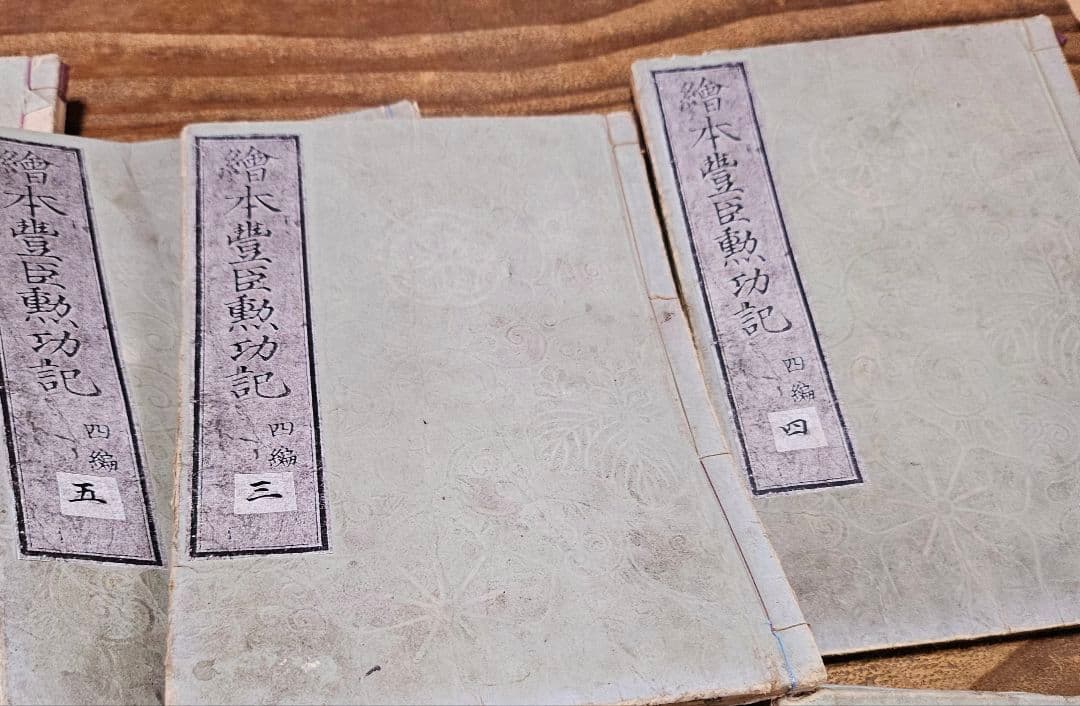 繪本豐臣勲功記
四編
五
繪本豐臣勲功記
四編
三
繪本豐臣勲功記
四編
四